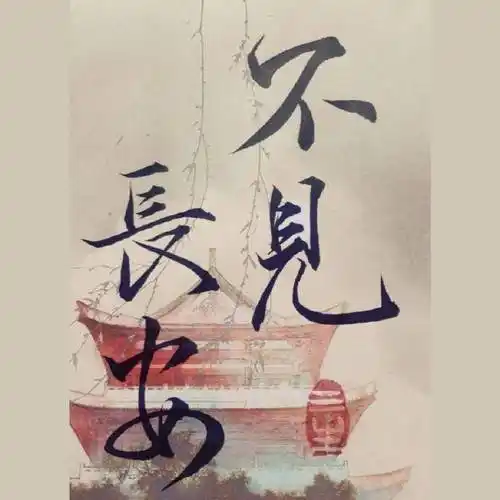 不見
長安